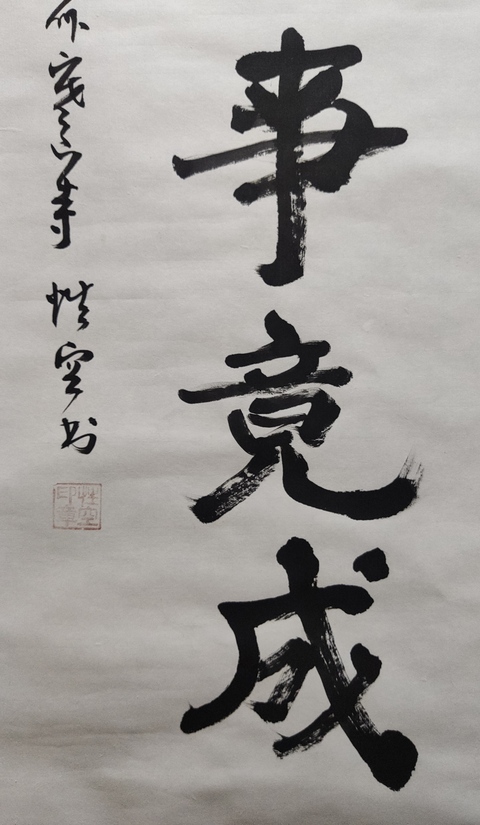 事竟成
寒山寺 性空书
性空
印章